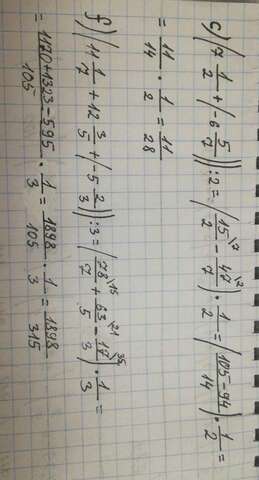 c) (7 1/2 + (-6 5/7)) : 2 = (15/2 \7 - 47/7 \2) · 1/2 = (105-94/14) · 1/2 =
= 11/14 · 1/2 = 11/28
f) (11 1/7 + 12 3/5 + (-5 2/3)) : 3 = (78/7 \15 + 63/5 \21 - 17/3 \35) · 1/3 =
= 1170+1323-595/105 · 1/3 = 1898/105 · 1/3 = 1898/315